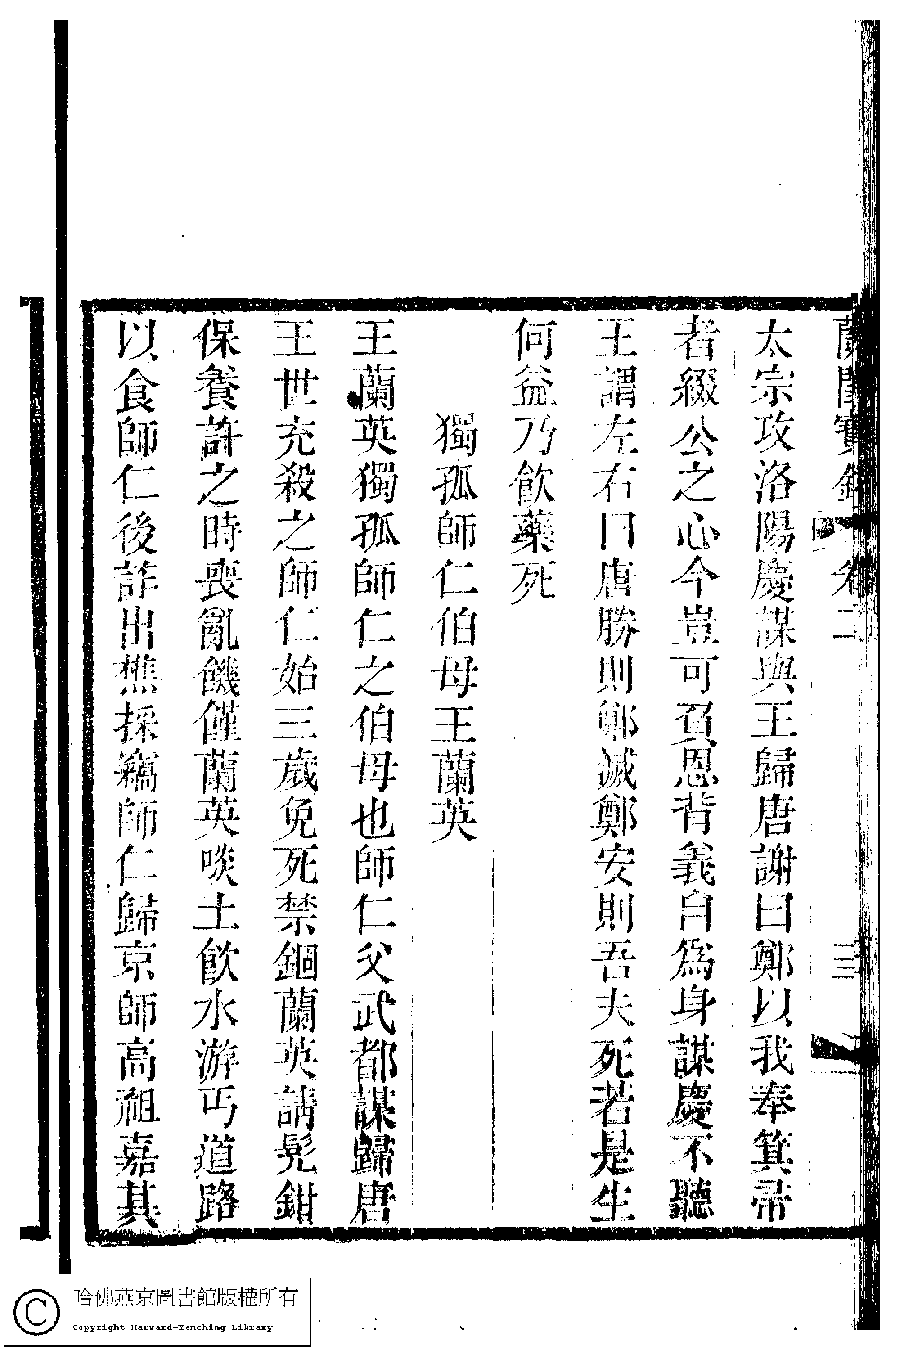 蘭閨寶錄 卷二 三
太宗攻洛陽慶謀與王歸唐謝曰鄭以我奉箕帚
者綴公之心今豈可負恩背義自為身謀慶不聽
王謂左右曰唐勝則鄭滅鄭安則吾夫死若是生
何益乃飲藥死
獨孤師仁伯母王蘭英
王蘭英獨孤師仁之伯母也師仁父武都謀歸唐
王世充殺之師仁始三歲免死禁錮蘭英請髡鉗
保養許之時喪亂饑僅蘭英啖土飲水游丐道路
以食師仁後詐出樵採竊師仁歸京師高祖嘉其
哈佛燕京圖書館版權所有
Copyright Harvard-Yenching Library